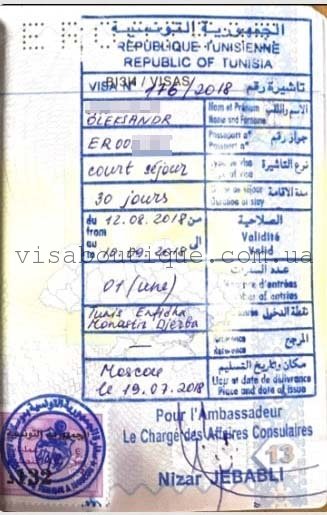 الجمهورية التونسية
RÉPUBLIQUE TUNISIENNE
REPUBLIC OF TUNISIA
ВІЗИ / VISAS
VISA N° 176/2018 تأشيرة رقم
الاسم واللقب
Nom et Prénom
Name and Forname
OLEKSANDR
ER00
جواز رقم
Passeport n°
Passport n°
court séjour
نوع التأشيرة
30 jours
مدة الاقامة
Duration of stay
du 12.08.2018 من
from
الصلاحية
Validité
Valid
au 18.09.2018 الى
to
visaboutique.com.ua
01 (une)
عدد السفرات
Nombre d'entrées
Number of entries
Tunis Enfidha
Monastir Djerba
نقطة الدخول
—
المرجع
Référence
Reference
Moscou
le 19.07.2018
مكان وتاريخ التسليم
Lieu et date de délivrance
Place and date of issue
Pour l'Ambassadeur
Le Chargé des Affaires Consulaires
Nizar JEBABLI
13